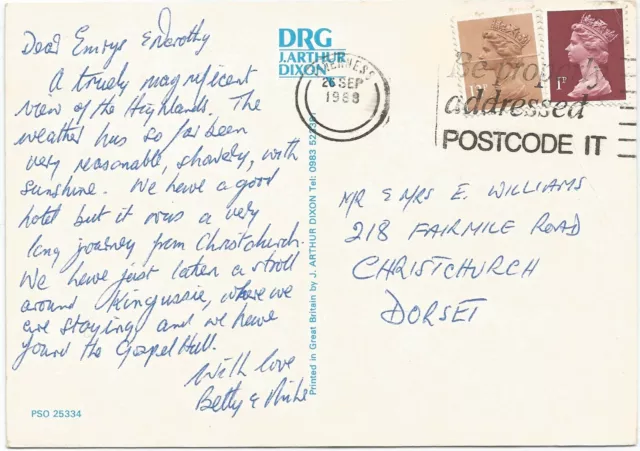 Dear Emrys & Dorothy
A truely magnificent
view of the Highlands. The
weather has so far been
very reasonable, showely, with
sunshine. We have a good
hotel but it was a very
long journey from Christchurch.
We have just taken a stroll
around Kingussie, where we
are staying and we have
found the Gospel Hall.
With love
Betty & Mike
PSO 25334
DRG
J.ARTHUR
DIXON
Printed in Great Britain by J. ARTHUR DIXON Tel: 0983 523381
INVERNESS
26 SEP
1988
Be properly
addressed
POSTCODE IT
1P
MR & MRS E. WILLIAMS
218 FAIRMILE ROAD
CHRISTCHURCH
DORSET